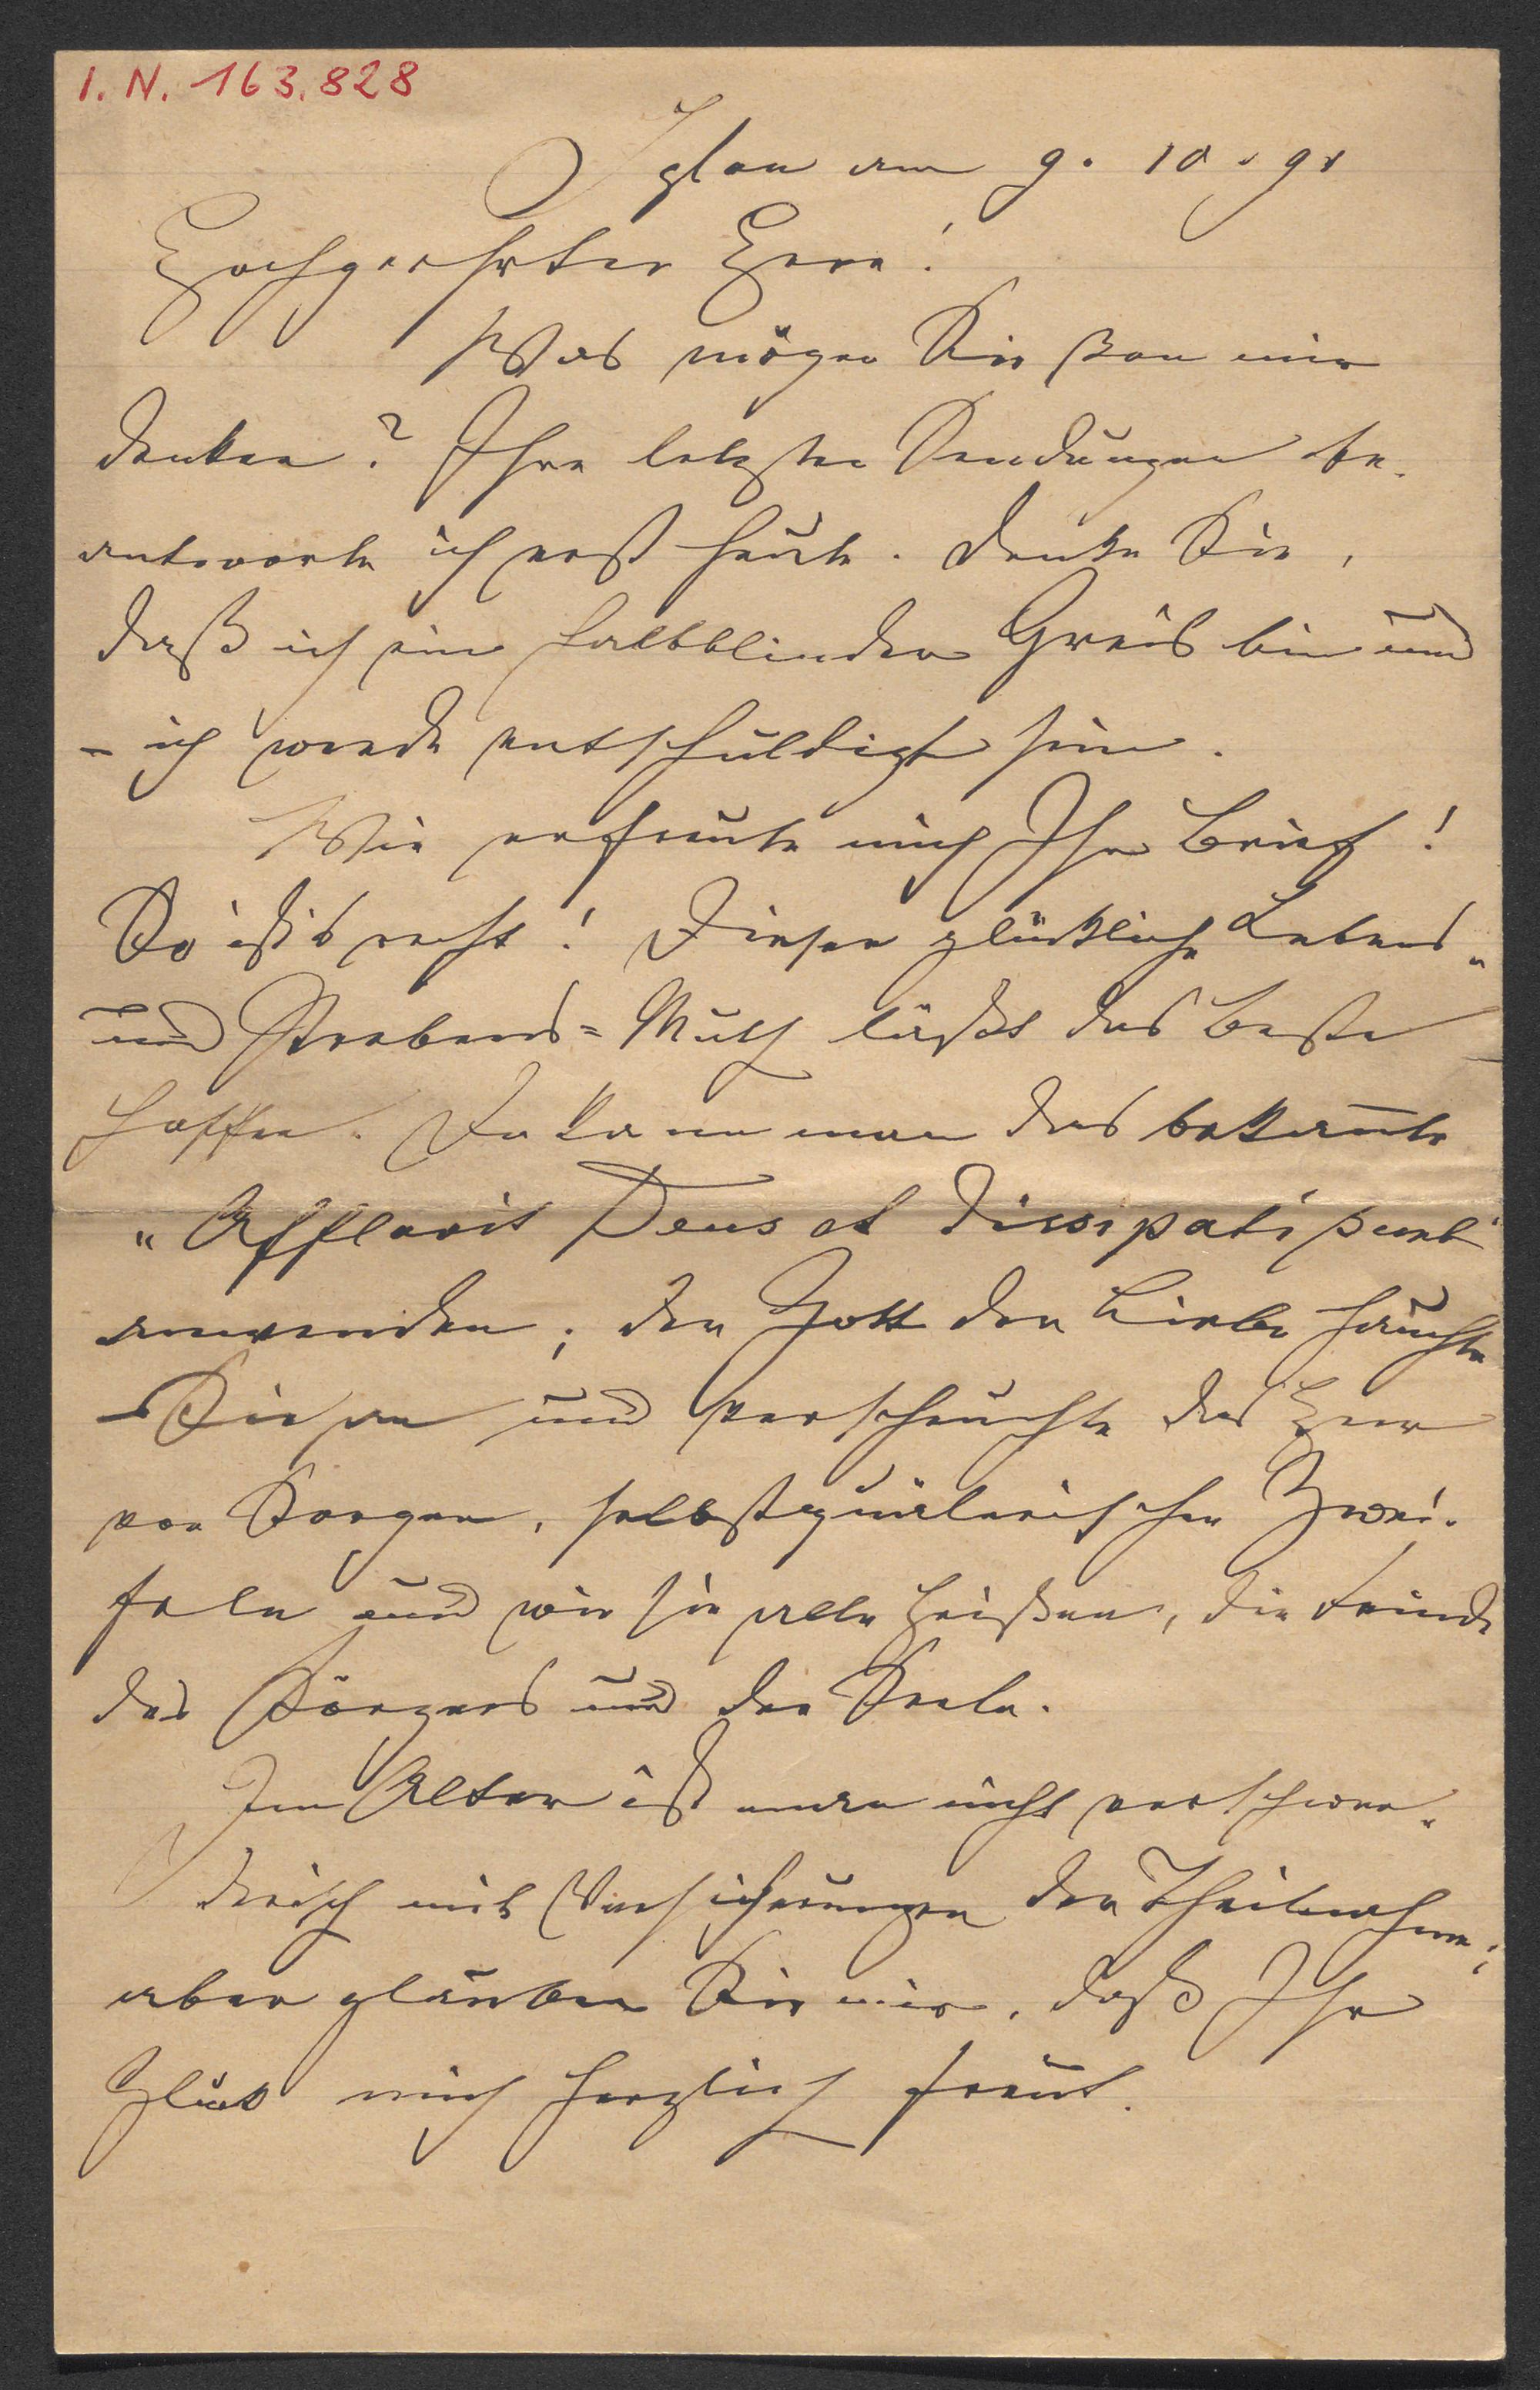 I. N. 163.828
Iglau am 9. 10. 91
Hochgeehrter Herr!
Was mögen Sie von mir
denken? Ihre letzten Sendungen be-
antworte ich erst heute. Denken Sie,
daß ich ein halbblinder Greis bin und
- ich werde entschuldigt sein.
Wie erfreute mich Ihr Brief!
So ist's recht! Dieser glückliche Lebens-
und Strebens-Muth läßt das Beste
hoffen. Da kann man das bekannte
"Afflavit Deus et dissipati sunt"
anwenden; der Gott der Liebe hauchte
Sie an und verscheuchte das Heer
von Sorgen, selbstquälerischen Zwei-
feln und wie sie alle heißen, die Feinde
des Körpers und der Seele.
Im Alter ist man nicht verschwen-
derisch mit Versicherungen der Theilnahme;
aber glauben Sie mir, daß Ihr
Glück mich herzlich freut.